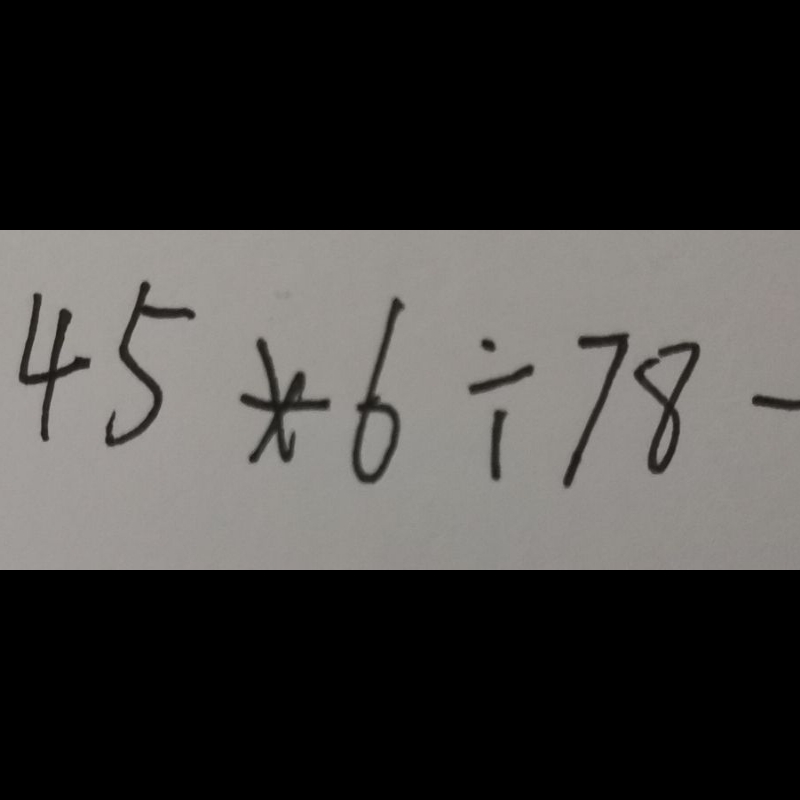 45 * 6 ÷ 78 -